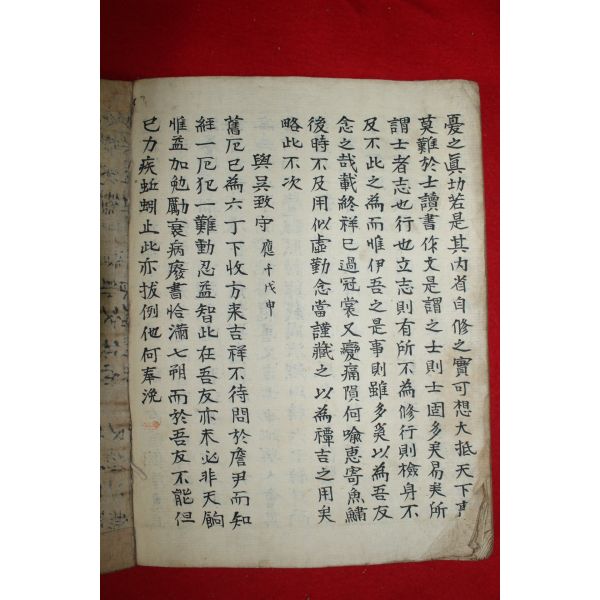 憂之眞功若是其內省自修之實可想大抵天下事
莫難於士讀書作文是謂之士則士固多矣易矣所
謂士者志也行也立志則有所不為修行則檢身不
及不此之為而惟伊吾之是事則雖多奚以為吾友
念之哉載終祥已過冠裳又變痛隕何喩惠寄魚鱐
後時不及用似虛勤念當謹藏之以為禫吉之用矣
略此不次
與吳致守 應千戊申
舊厄已為六丁下收方來吉祥不待問於詹尹而知
經一厄犯一難動忍益智此在吾友亦未必非天餉
惟益加勉勵衰病廢書恰滿七朔而於吾友不能但
已力疾蚯蚓止此亦拔例也何奉浼